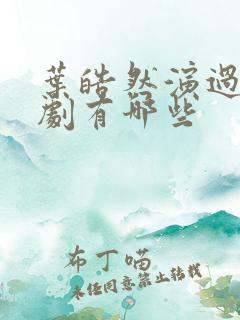 葉皓然演過
劇有哪些
布丁喵
未经同意禁止转载